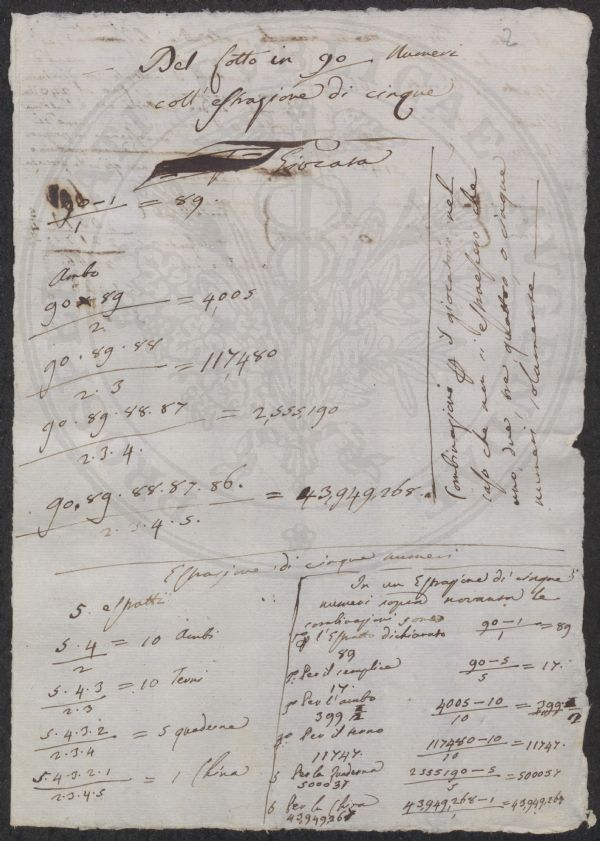 2
Del Lotto in 90 Numeri
coll'estrazione di cinque
Giocata
90-1 / 1 = 89.
Ambo
90 × 89 / 2 = 4,005
90 · 89 · 88 / 2 · 3 = 117,480
90 · 89 · 88 · 87 / 2 · 3 · 4. = 2,555,190
90 · 89 · 88 · 87 · 86. / 2 · 3 · 4 · 5. = 43,949,268.
Combinazioni il giocatore nel
caso che non si estraessero che
uno due tre quattro o cinque
numeri solamente
Estrazione di cinque numeri
5. estratti
5 · 4 / 2 = 10 Ambi
5 · 4 · 3 / 2 · 3 = 10 Terni
5 · 4 · 3 · 2 / 2 · 3 · 4 = 5 quaderne
5 · 4 · 3 · 2 · 1 / 2 · 3 · 4 · 5 = 1 Cinva
In un Estrazione di cinque
numeri sopra novanta le
combinazioni sono
l'Estratto dichiarato 90-1 / 1 = 89
89
Per il semplice 90-5 / 5 = 17.
17.
Per l'ambo 4005-10 / 10 = 399 1/2
399 1/2
Per il terno 117480-10 / 10 = 11747.
11747.
5 Per la Quaderna 2555190-5 / 5 = 500057
500037
6 Per la Cinva 43,949,268-1 / 1 = 43,949,267
43,949,267